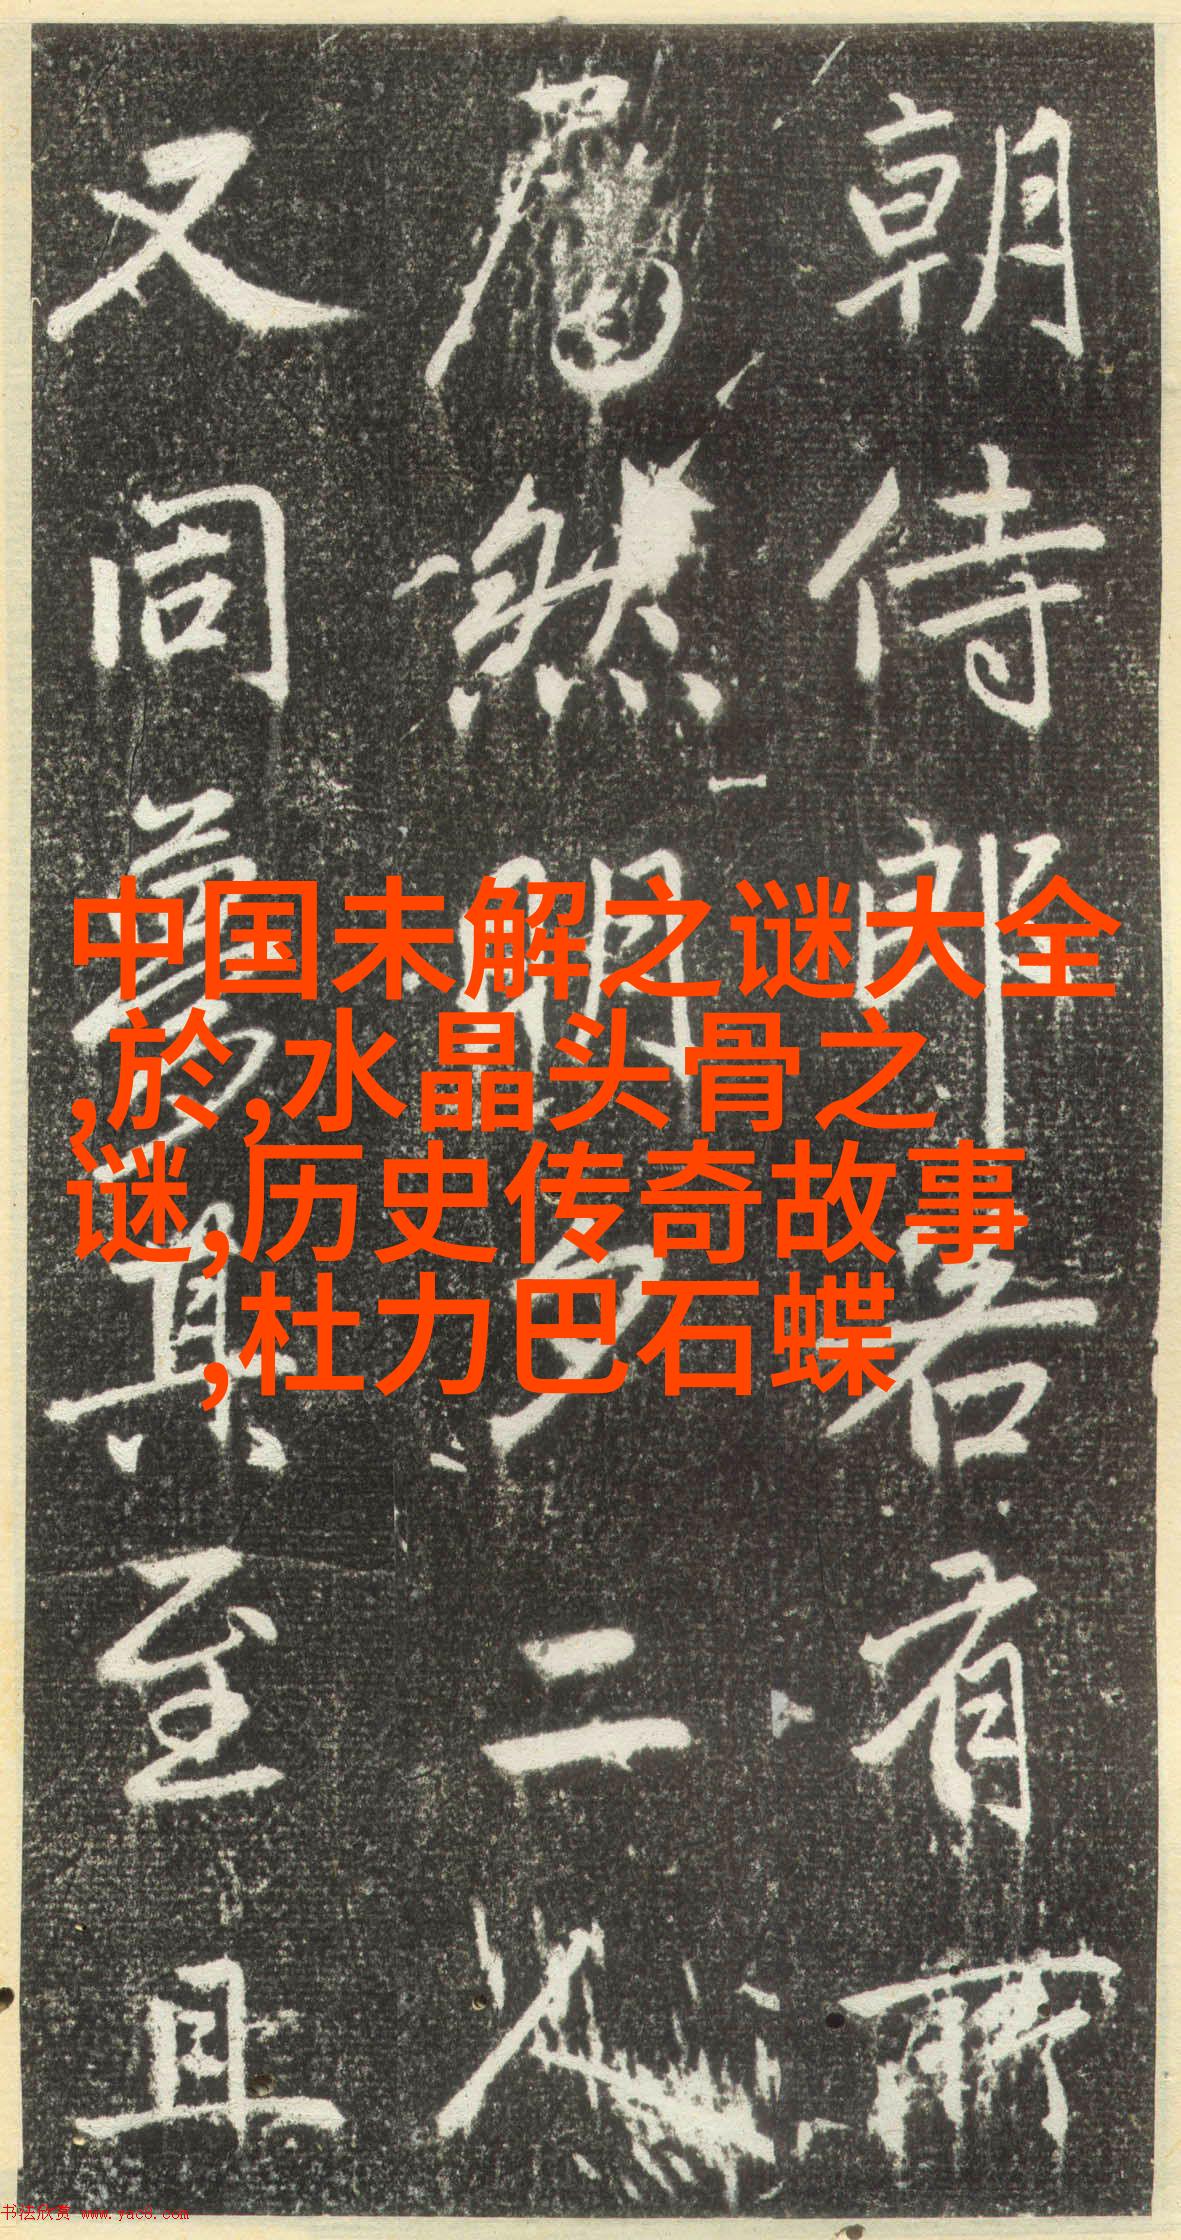 朝侍郎若有所
然明夕二人
又同夢其至且
中国未解之谜大全
,於,水晶头骨之
谜,历史传奇故事
,杜力巴石蝶
书法欣赏 www.yac8.com